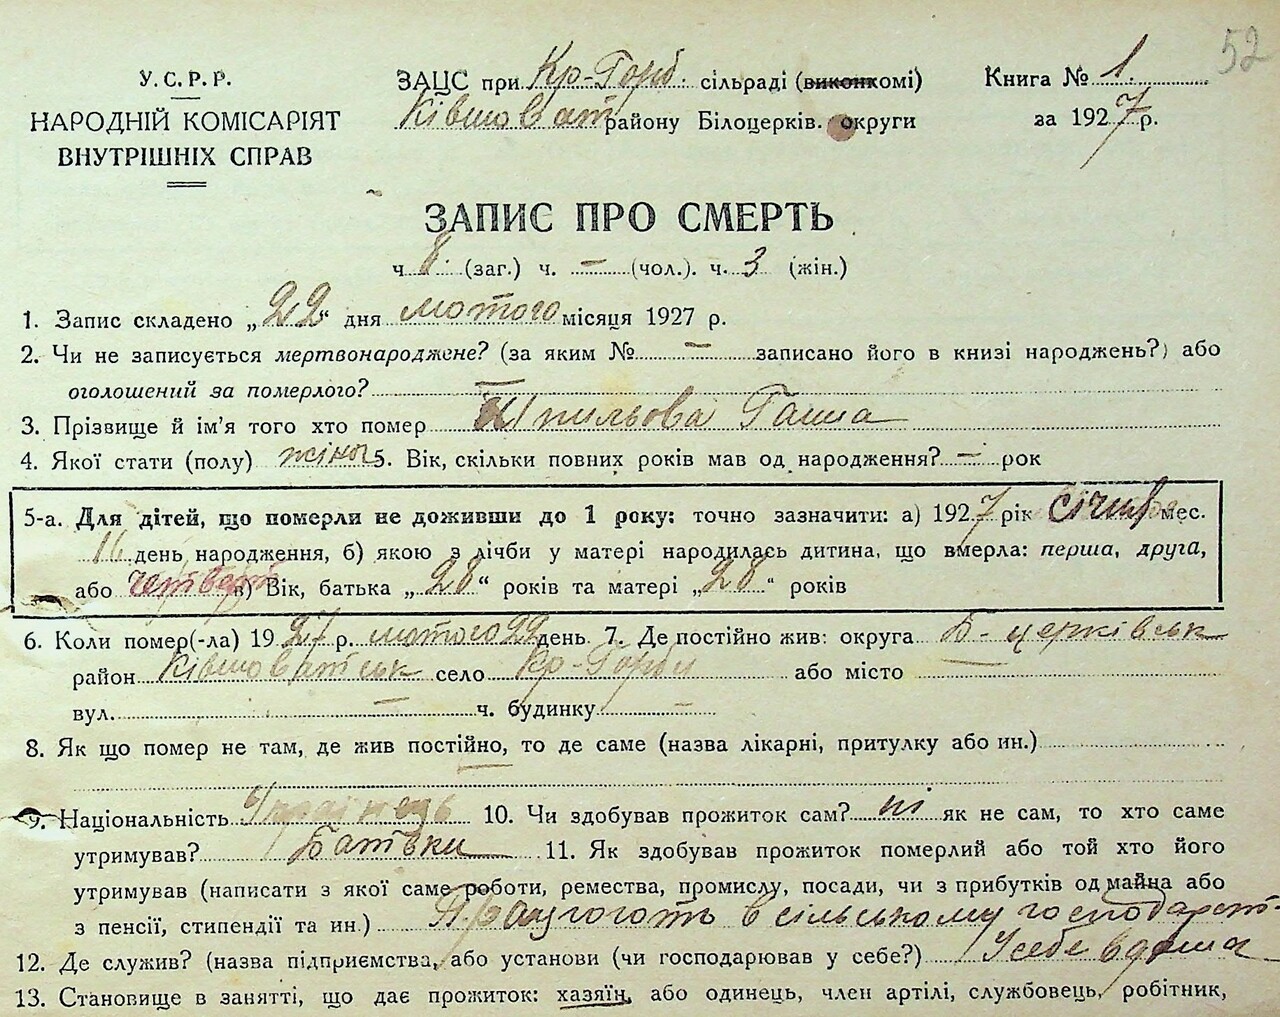 52
У.С.Р.Р.
НАРОДНІЙ КОМІСАРІЯТ
ВНУТРІШНІХ СПРАВ
ЗАЦС при Кр-Горб. сільраді (виконкомі)
Ківшоват району Білоцерків. округи
Книга № 1.
за 1927 р.
ЗАПИС ПРО СМЕРТЬ
ч. 8. (заг.) ч. – (чол.). ч. 3 (жін.)
1. Запис складено „22“ дня лютого місяця 1927 р.
2. Чи не записується мертвонароджене? (за яким № – записано його в книзі народжень?) або
оголошений за померлого? –
3. Прізвище й ім'я того хто помер Шпильова Ганна
4. Якої стати (полу) жіноч 5. Вік, скільки повних років мав од народження? – рок
5-а. Для дітей, що померли не доживши до 1 року: точно зазначити: а) 1927 рік січня мес.
16 день народження, б) якою з лічби у матері народилась дитина, що вмерла: перша, друга,
або четверт в) Вік, батька „28“ років та матері „28“ років
6. Коли помер(-ла) 1927 р. лютого 22 день 7. Де постійно жив: округа Б-церківськ
район Ківшоватськ село Кр-Горби або місто –
вул. – ч. будинку –
8. Як що помер не там, де жив постійно, то де саме (назва лікарні, притулку або ин.)
9. Національність Українець 10. Чи здобував прожиток сам? ні як не сам, то хто саме
утримував? Батьки 11. Як здобував прожиток померлий або той хто його
утримував (написати з якої саме роботи, ремества, промислу, посади, чи з прибутків од майна або
з пенсії, стипендії та ин.) Працюють в сільському господарст-
12. Де служив? (назва підприємства, або установи (чи господарював у себе?) У себе вдома
13. Становище в занятті, що дає прожиток: хазяїн, або одинець, член артілі, службовець, робітник,